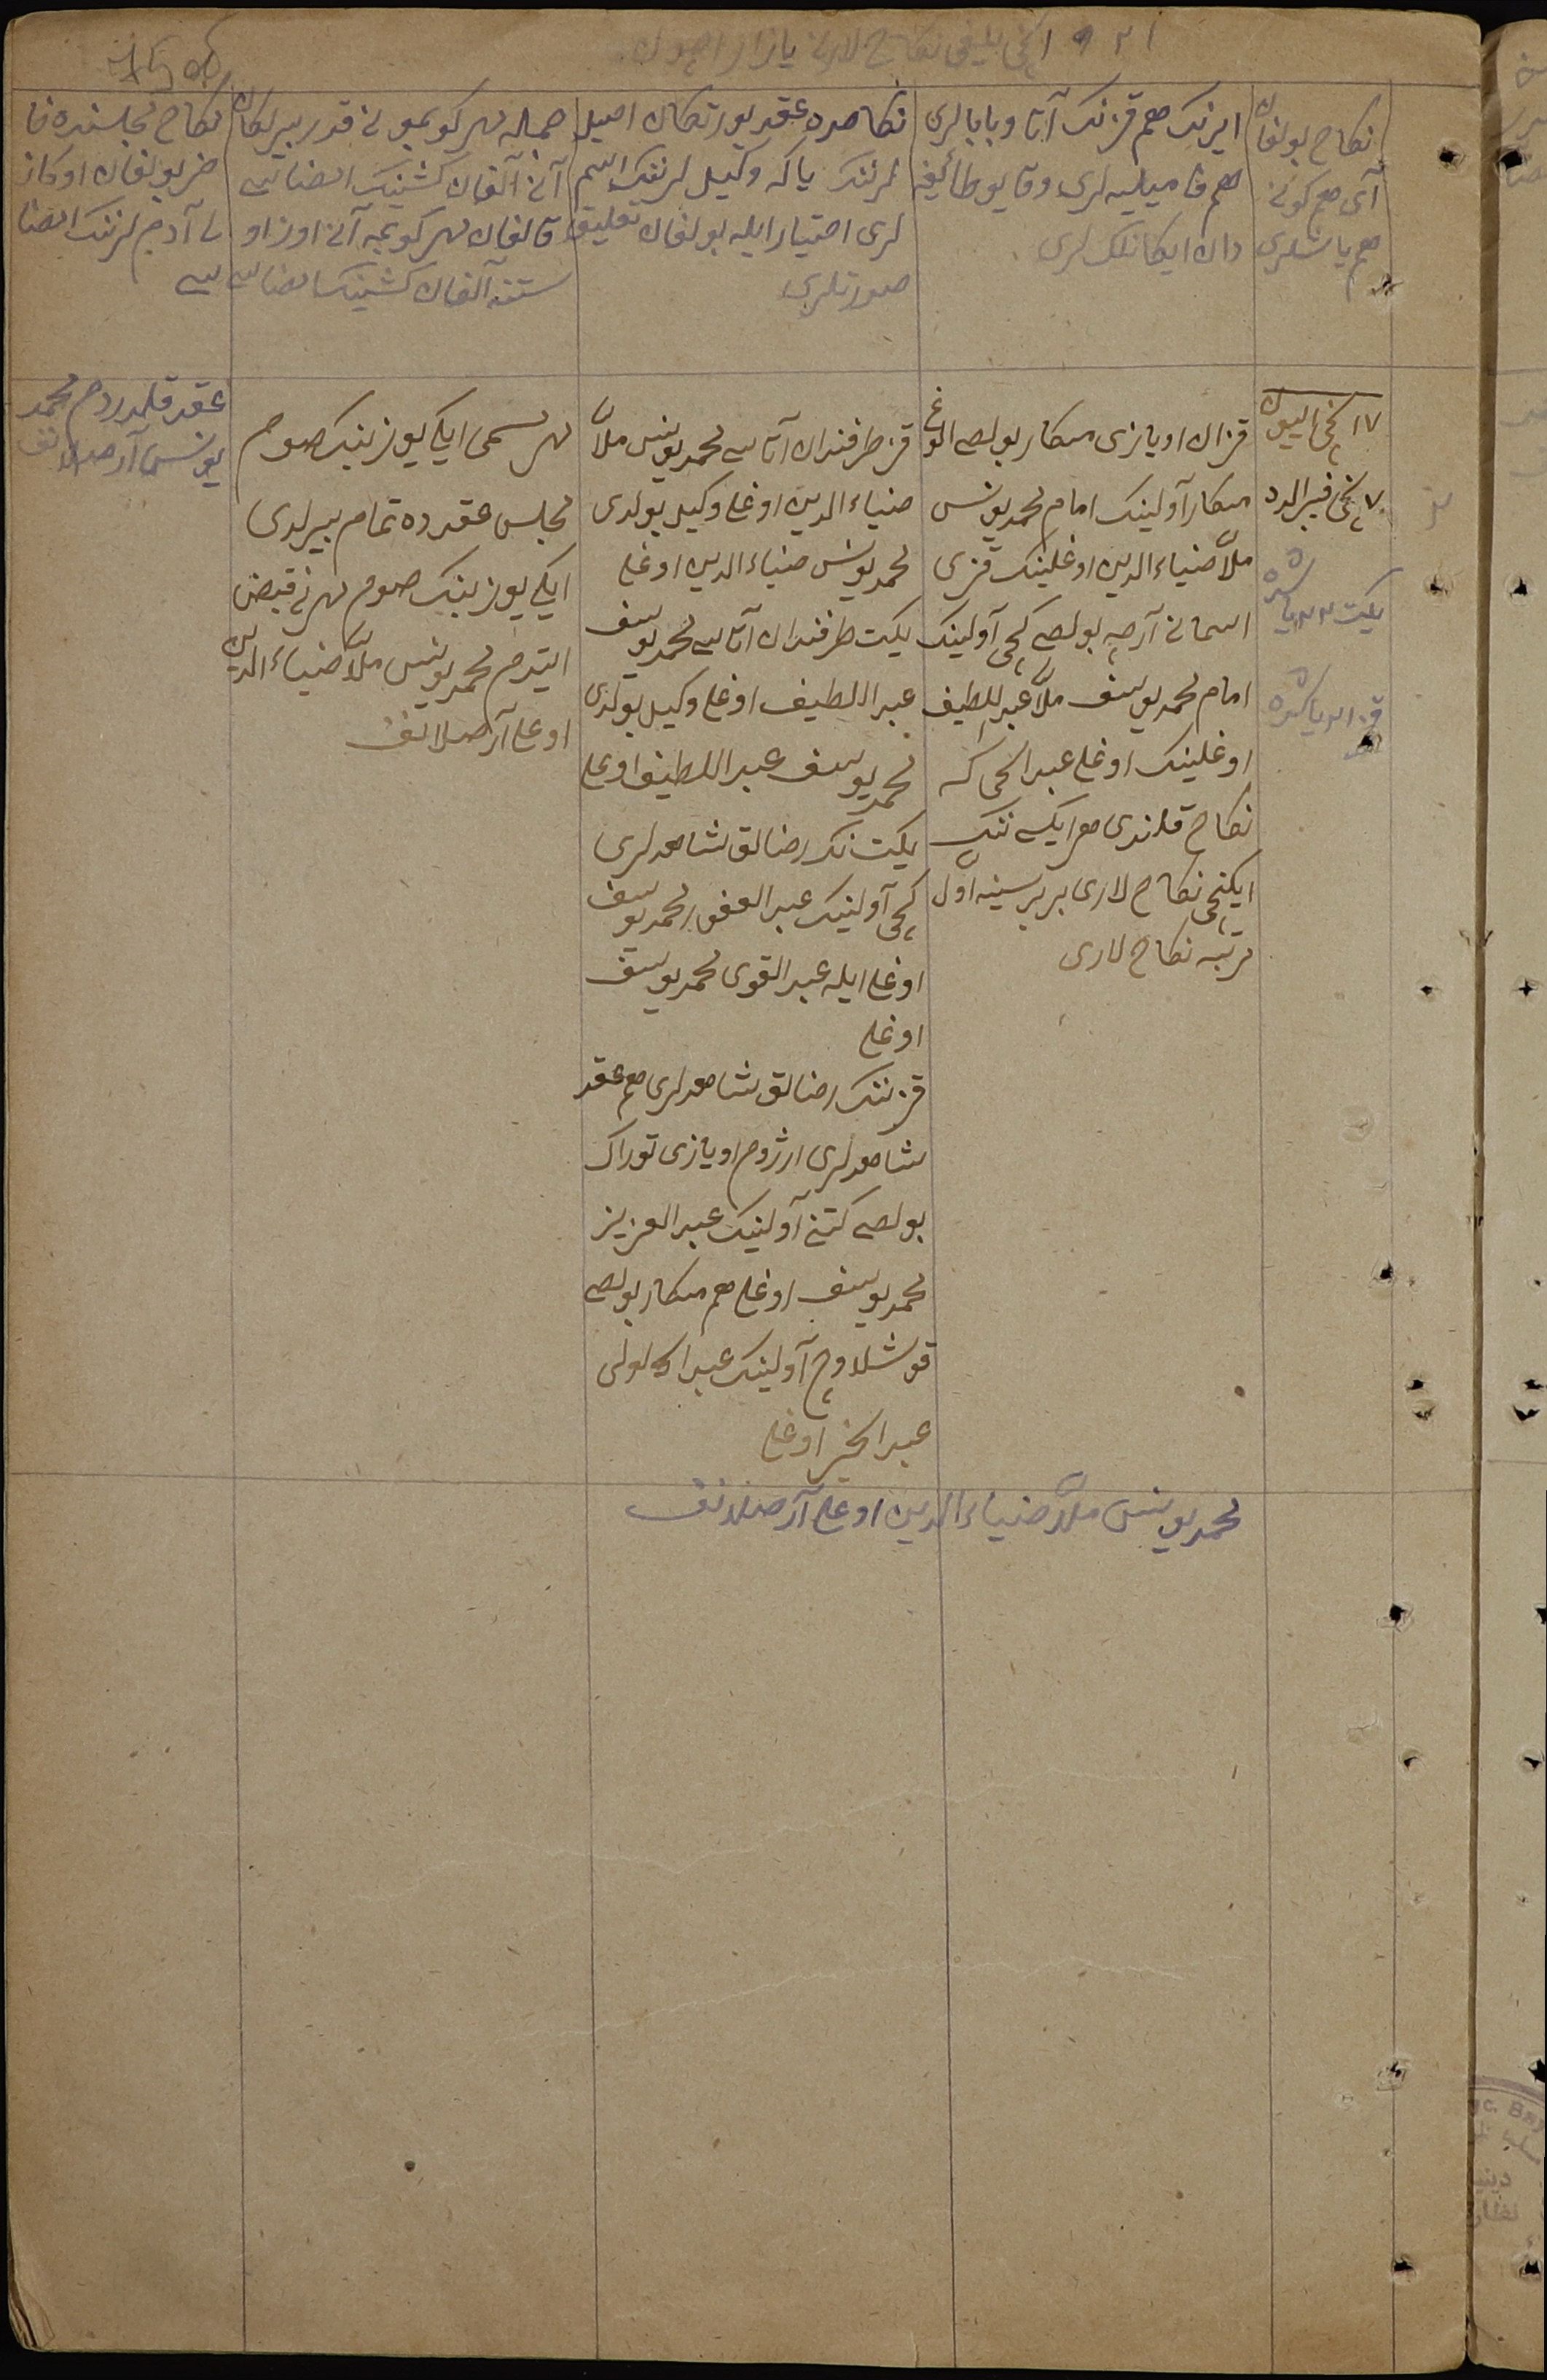 ١٩٢١ نچی یلغی نکاح لارنی یازار اصول
نکاح بولغان
آی هم کونی
هم یاشلری
ایرنک هم قزنک آتا و بابالری
هم فامیلیه لری و قایو طائفه
دان ایکانلک لری
نکاحده عقد یورتکان اصیل
لرننک یا که وکیل لرننک اسم
لری اختیار ایله بولغان تعلیق
صورتلری
جمله مهر کوبمو نی قدر بیرلکان
آنی آلغان کشینک امضاسی
قالغان مهر کوبمه آنی اوز او
ستنه آلغان کشینک امضاسی
نکاح مجلسنده حا
ضر بولغان اوکاز
لی آدم لرننک امضا
سی
١٧ نچی اییول
٧ نچی فیرالد
یکت ٢٢ یاشده
قز ١٨ یاشده
قزان اویازی مسکار بولصی الوغ
مسکار آولینک امام محمدیونس
ملا ضیاءالدین اوغلینک قزی
اسمانی آرچه بولصی کچی آولینک
امام محمدیوسف ملا عبداللطیف
اوغلینک اوغلی عبدالحی که
نکاح قلندی هر ایکی ننک
ایکنچی نکاح لاری بربرسینه اول
مرتبه نکاح لاری
قز طرفندان آتاسی محمدیونس ملا
ضیاءالدین اوغلی وکیل بولدی
محمدیونس ضیاءالدین اوغلی
یکت طرفندان آتاسی محمدیوسف
عبداللطیف اوغلی وکیل بولدی
محمدیوسف عبداللطیف اوغلی
یکت ننک رضالق شاهدلری
کچی آولینک عبدالغفور محمدیوسف
اوغلی ایله عبدالقوی محمدیوسف
اوغلی
قزننک رضالق شاهدلری هم عقد
شاهدلری ارژوم اویازی توراک
بولصی کتنی آولینک عبدالعزیز
محمدیوسف اوغلی هم مسکار بولصی
قوشلاوچ آولینک
عبدالخبیر اوغلی
مهر مسمی ایکی یوز بنیک صوم
مجلس عقدده تمام بیرلدی
ایکی یوز بنیک صوم مهرنی قبض
ایتدم محمدیونس ملا ضیاءالدین
اوغلی آرصلانف
عقد قلدردم محمد
یونس آرصلانف
محمدیونس ملا ضیاءالدین اوغلی آرصلانف